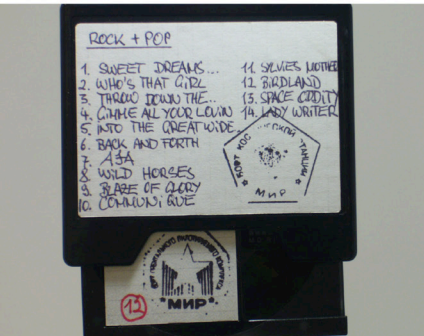 ROCK + POP
1. SWEET DREAMS...
2. WHO'S THAT GIRL
3. THROW DOWN THE..
4. GIMME ALL YOUR LOVIN
5. INTO THE GREAT WIDE..
6. BACK AND FORTH
7. AJA
8. WILD HORSES
9. BLAZE OF GLORY
10. COMMUNIQUE
11. SYLVIES MOTHER
12. BIRDLAND
13. SPACE ODDITY
14. LADY WRITER
МИР
МИР
12